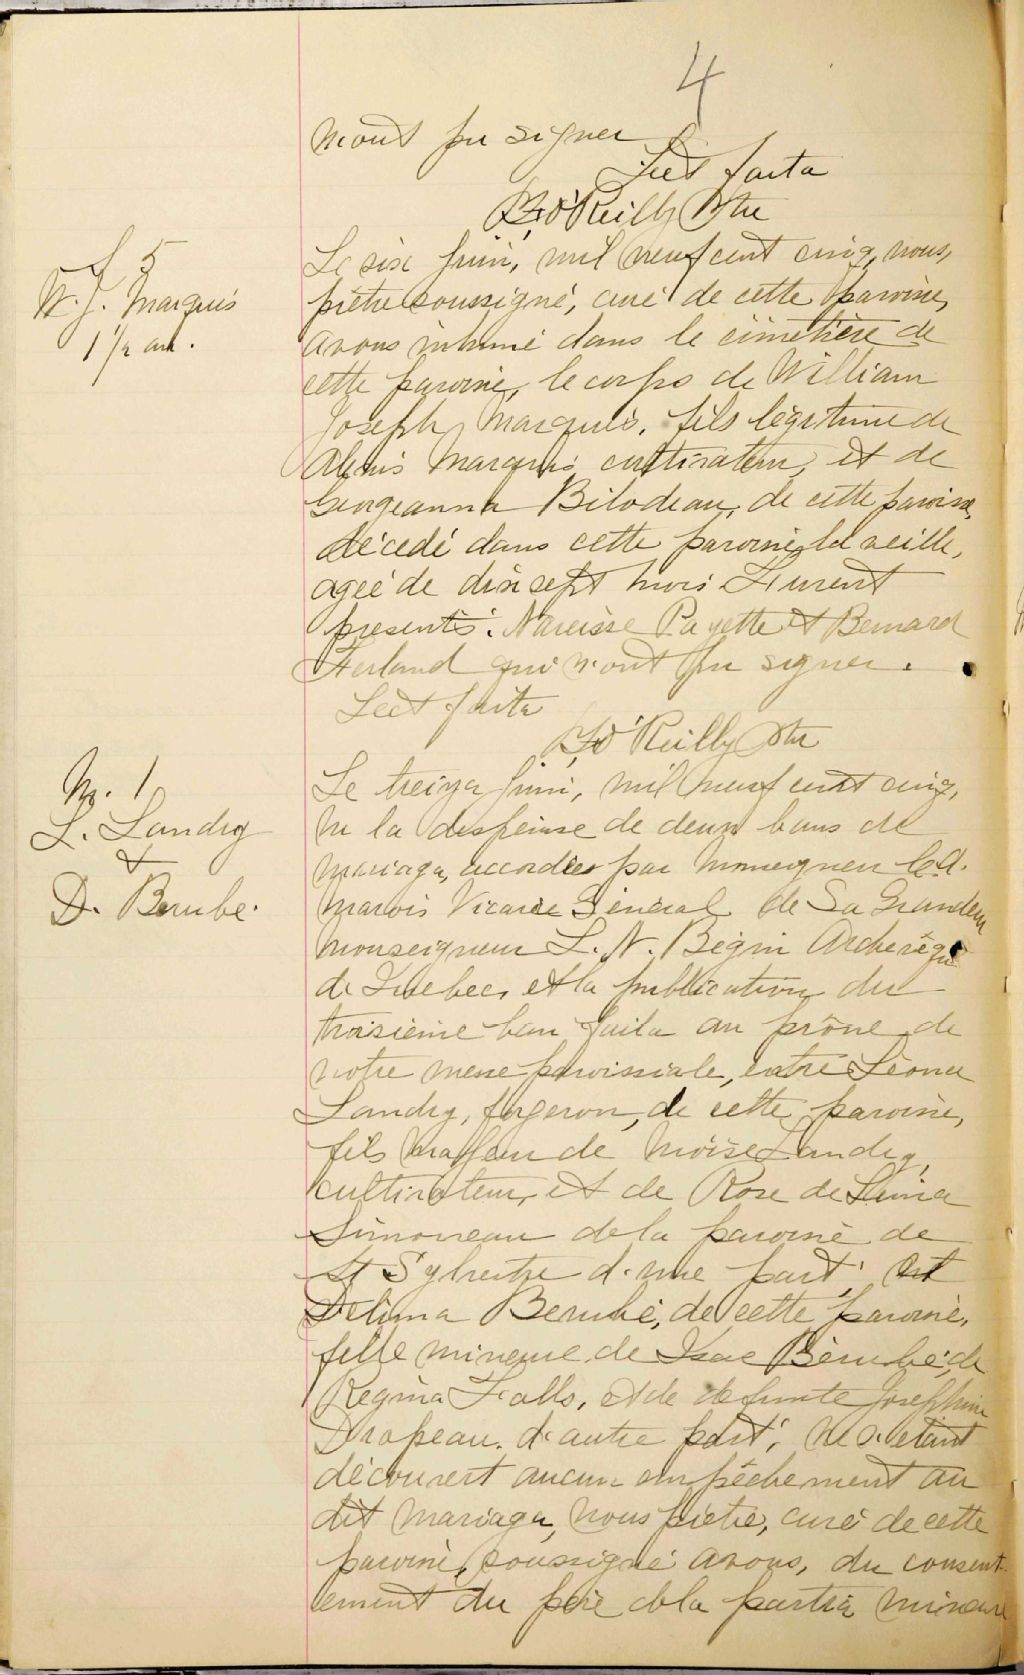 4
n'ont pu signer
Lect faita
O'Reilly Ptre
S 5
W. J. Marquis
1 1/2 an.
Le six juin, mil neuf cent cinq, nous,
prêtre soussigné, curé de cette paroisse,
avons inhumé dans le cimetière de
cette paroisse, le corps de William
Joseph Marquis, fils légitime de
Alexis Marquis cultivateur, et de
Georgeanna Bilodeau, de cette paroisse,
décédé dans cette paroisse la veille,
agée de dix sept mois Furent
presents: Narcisse Payette et Bernard
Ferland qui n'ont pu signer.
Lect faita
O'Reilly Ptre
M. 1
L. Landry
&
D. Berube.
Le treize juin, mil neuf cent cinq,
vu la dispense de deux bans de
mariage, accordées par Monseigneur C. A.
Marois Vicaire Général de Sa Grandeur
Monseigneur L. N. Bégin Archevêque
de Quebec, et la publication du
troisième ban faite au prône de
notre messe paroissiale, entre Léonce
Landry, forgeron, de cette paroisse,
fils majeur de Moïse Landry,
cultivateur, et de Rose de Lima
Simoneau de la paroisse de
St Sylvestre d'une part; et
Delima Berubé, de cette paroisse,
fille mineure de Isac Bérubé, de
Regina Falls, et de defunte Josephine
Drapeau. d'autre part; ne s'étant
découvert aucun empêchement au
dit mariage, nous prêtre, curé de cette
paroisse, soussigné avons, du consent-
ement du père de la partie mineure